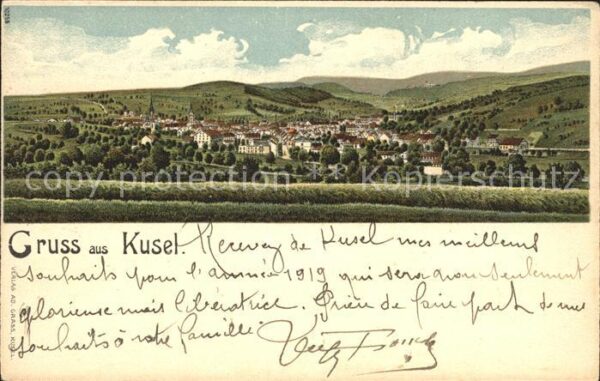 10258
copy protection Kopierschutz
Gruss aus Kusel. Recevez de Kusel mes meilleurs
souhaits pour l'année 1919 qui sera non seulement
glorieuse mais libératrice. Prière de faire part de mes
souhaits à votre famille.
VERLAG AD. GRASS, KUSEL.